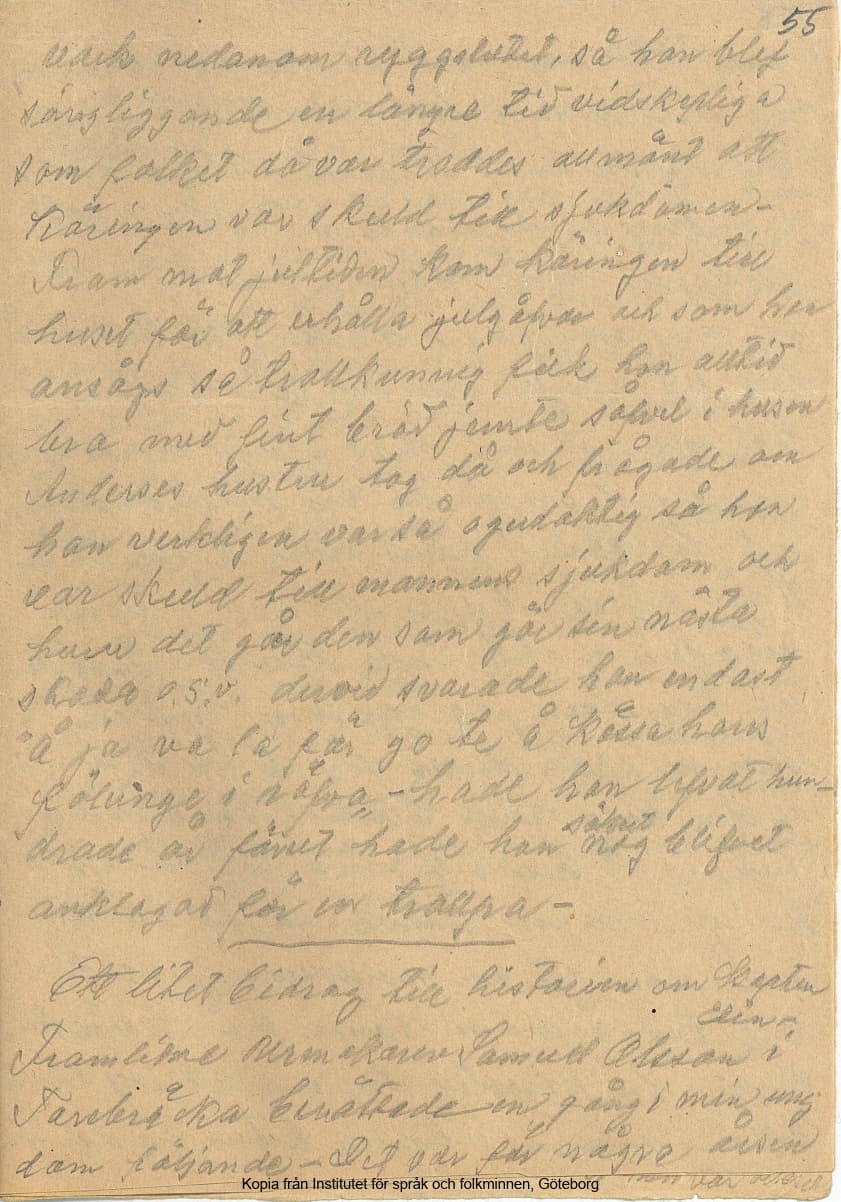 55
värk nedanom ryggslutet, så han blef
sängliggande en längre tid vidskepliga
som folket då var troddes allmänt att
Käringen var skuld till sjukdomen -
Fram mot jultiden kom käringen till
huset för att erhålla julgåfvor och som hon
ansågs så trollkunnig fick hon alltid
bra med fint bröd jemte sofvel i husen
Anderses hustru tog då och frågade om
hon verkligen var så ogudaktig så hon
var skuld till mannens sjukdom och
huru det går den som gör sin nästa
skada o.s.v. dervid svarade hon endast
"Å ja va la får go te å kössa hans
fölunge i röfva" - hade hon lefvat hun-
drade år förut hade hon säkert nog blifvet
anklagad för en trollpa -
Ett litet bidrag till historien om Skepten
Elin -
Framlidne Urmakaren Samuel Olsson i
Torebräcka berättade en gång i min ung
dom följande - Det var för några år sen
Kopia från Institutet för språk och folkminnen, Göteborg